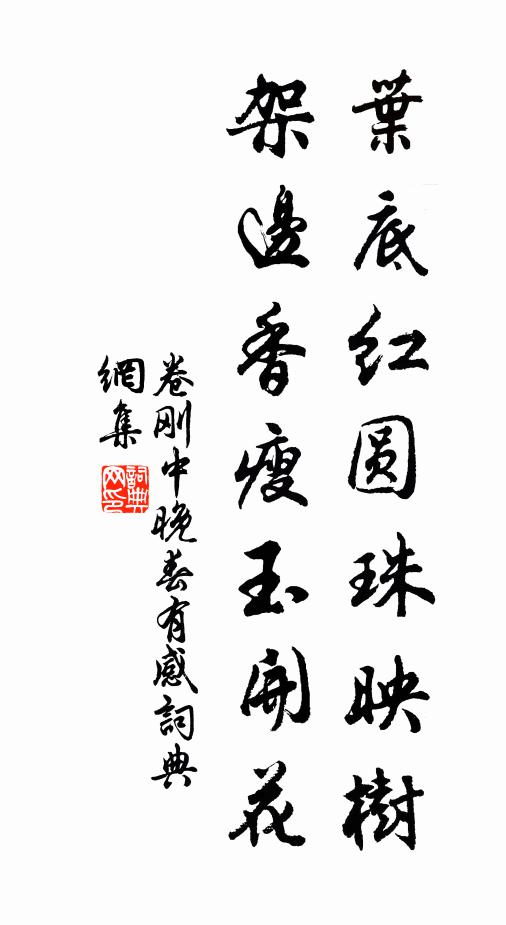 葉底红圆珠映樹
架邊香瘦玉開花
卷刚中晚春有感詞典
網集
詞典网印